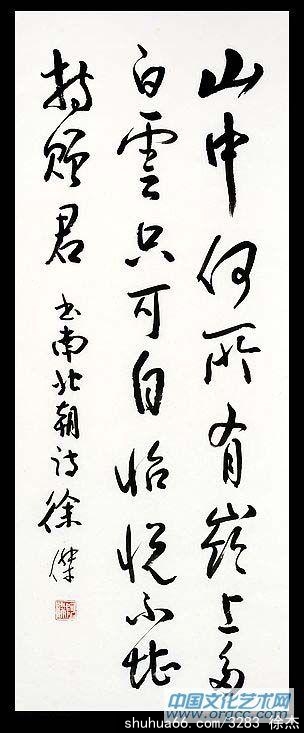 山中何所有嶺上多
白雲只可自怡悦不堪
持贈君
书南北朝诗徐傑
中国文化艺术网
www.orgcc.com
shuhuaoo.com/3283 徐杰